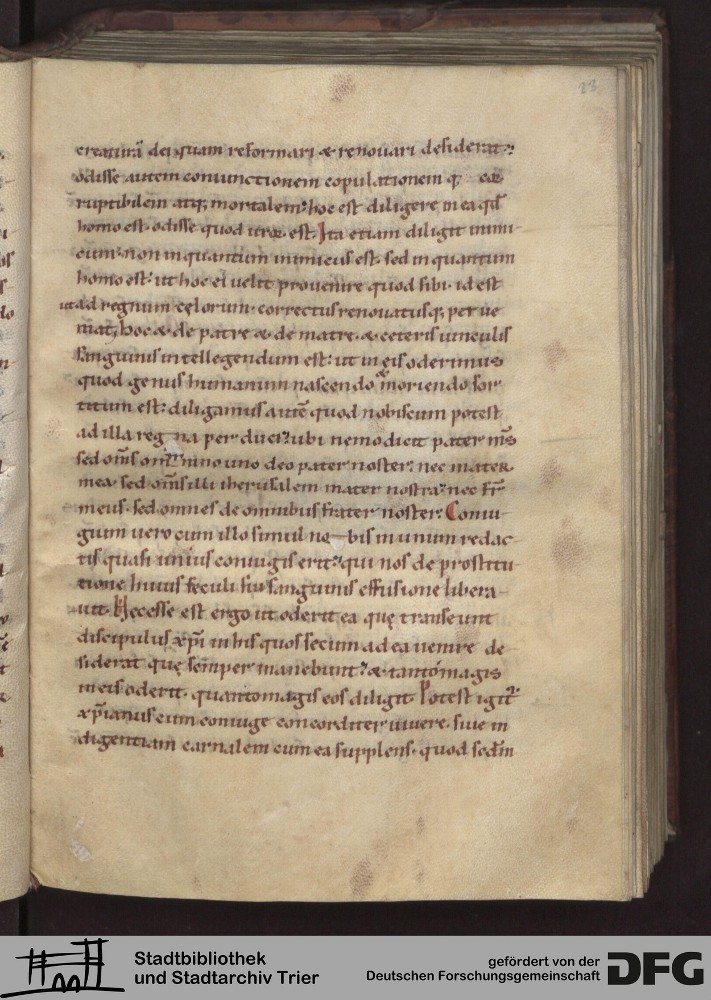 23
creaturā dei quam reformari & renouari desiderat;
odisse autem coniunctionem copulationem q; cor
ruptibilem atq; mortalem; hoc est diligere in ea qđ
homo est. odisse quod uxor est. Ita etiam diligit inimi
cum. non inquantum inimicus est. sed inquantum
homo est. ut hoc ei uelit prouenire quod sibi. id est
ut ad regnum cęlorum. correctus renouatusq; perue
niat; hoc & de patre & de matre. & ceteris uinculis
sanguinis intellegendum est. ut in eis oderimus
quod genus humanum nascendo & moriendo sor
titum est. diligamus autē quod nobiscum potest
ad illa regna perduci. ubi nemo dicit pater m̅s
sed om̅s omnino uno deo pater noster. nec mater
mea. sed om̅s illi iherusalem mater nostra. nec fr̅
meus. sed omnes de omnibus frater noster. Coniu
gium uero cum illo simul nobis in unum redac
tis quasi unius coniugis erit. qui nos de prostitu
tione huius seculi sui sanguinis effusione libera
uit. Necesse est ergo ut oderit ea quę transeunt
discipulus xp̅i in his quos secum ad ea uenire de
siderat quę semper manebunt. & tanto magis
in eis oderit. quanto magis eos diligit. Potest igit
xp̅ianus cum coniuge concorditer uiuere. siue in
digentiam carnalem cum ea supplens. quod scdm
Stadtbibliothek
und Stadtarchiv Trier
gefördert von der
Deutschen Forschungsgemeinschaft
DFG